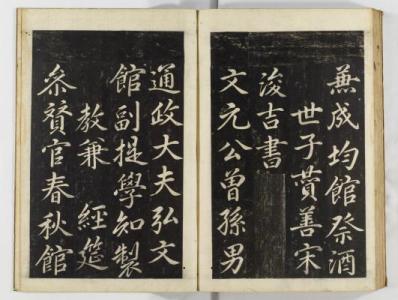 兼成均館祭酒
世子賛善宋
浚吉書
文元公曽孫男
通政大夫弘文
館副提學知製
教兼　經筵
叅賛官春秋館